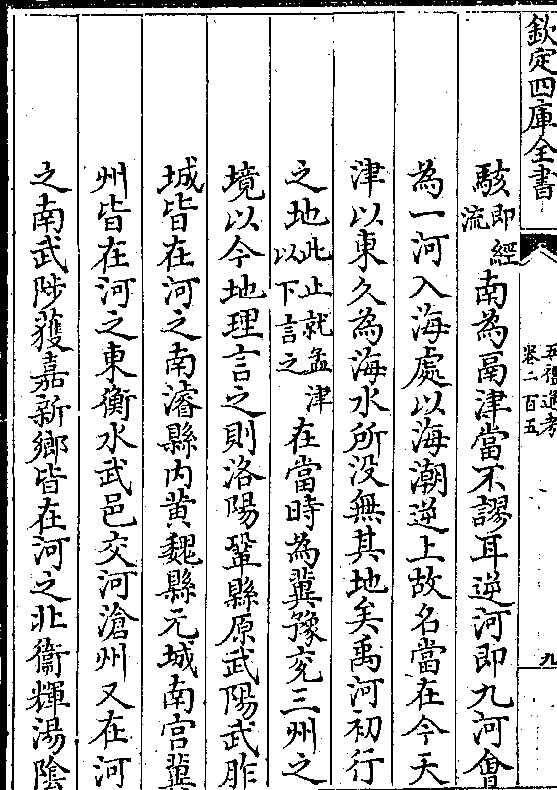 欽定四庫全書
五禮通考
卷二百五
九
駭即經流南為鬲津當不謬耳逆河即九河會
為一河入海處以海潮逆上故名當在今天
津以東久為海水所没無其地矣禹河初行
之地此止就孟津以下言之在當時為冀豫兖三州之
境以今地理言之則洛陽鞏縣原武陽武胙
城皆在河之南濬縣内黄魏縣元城南宫冀
州皆在河之東衡水武邑交河滄州又在河
之南武陟獲嘉新鄉皆在河之北衞輝湯隂